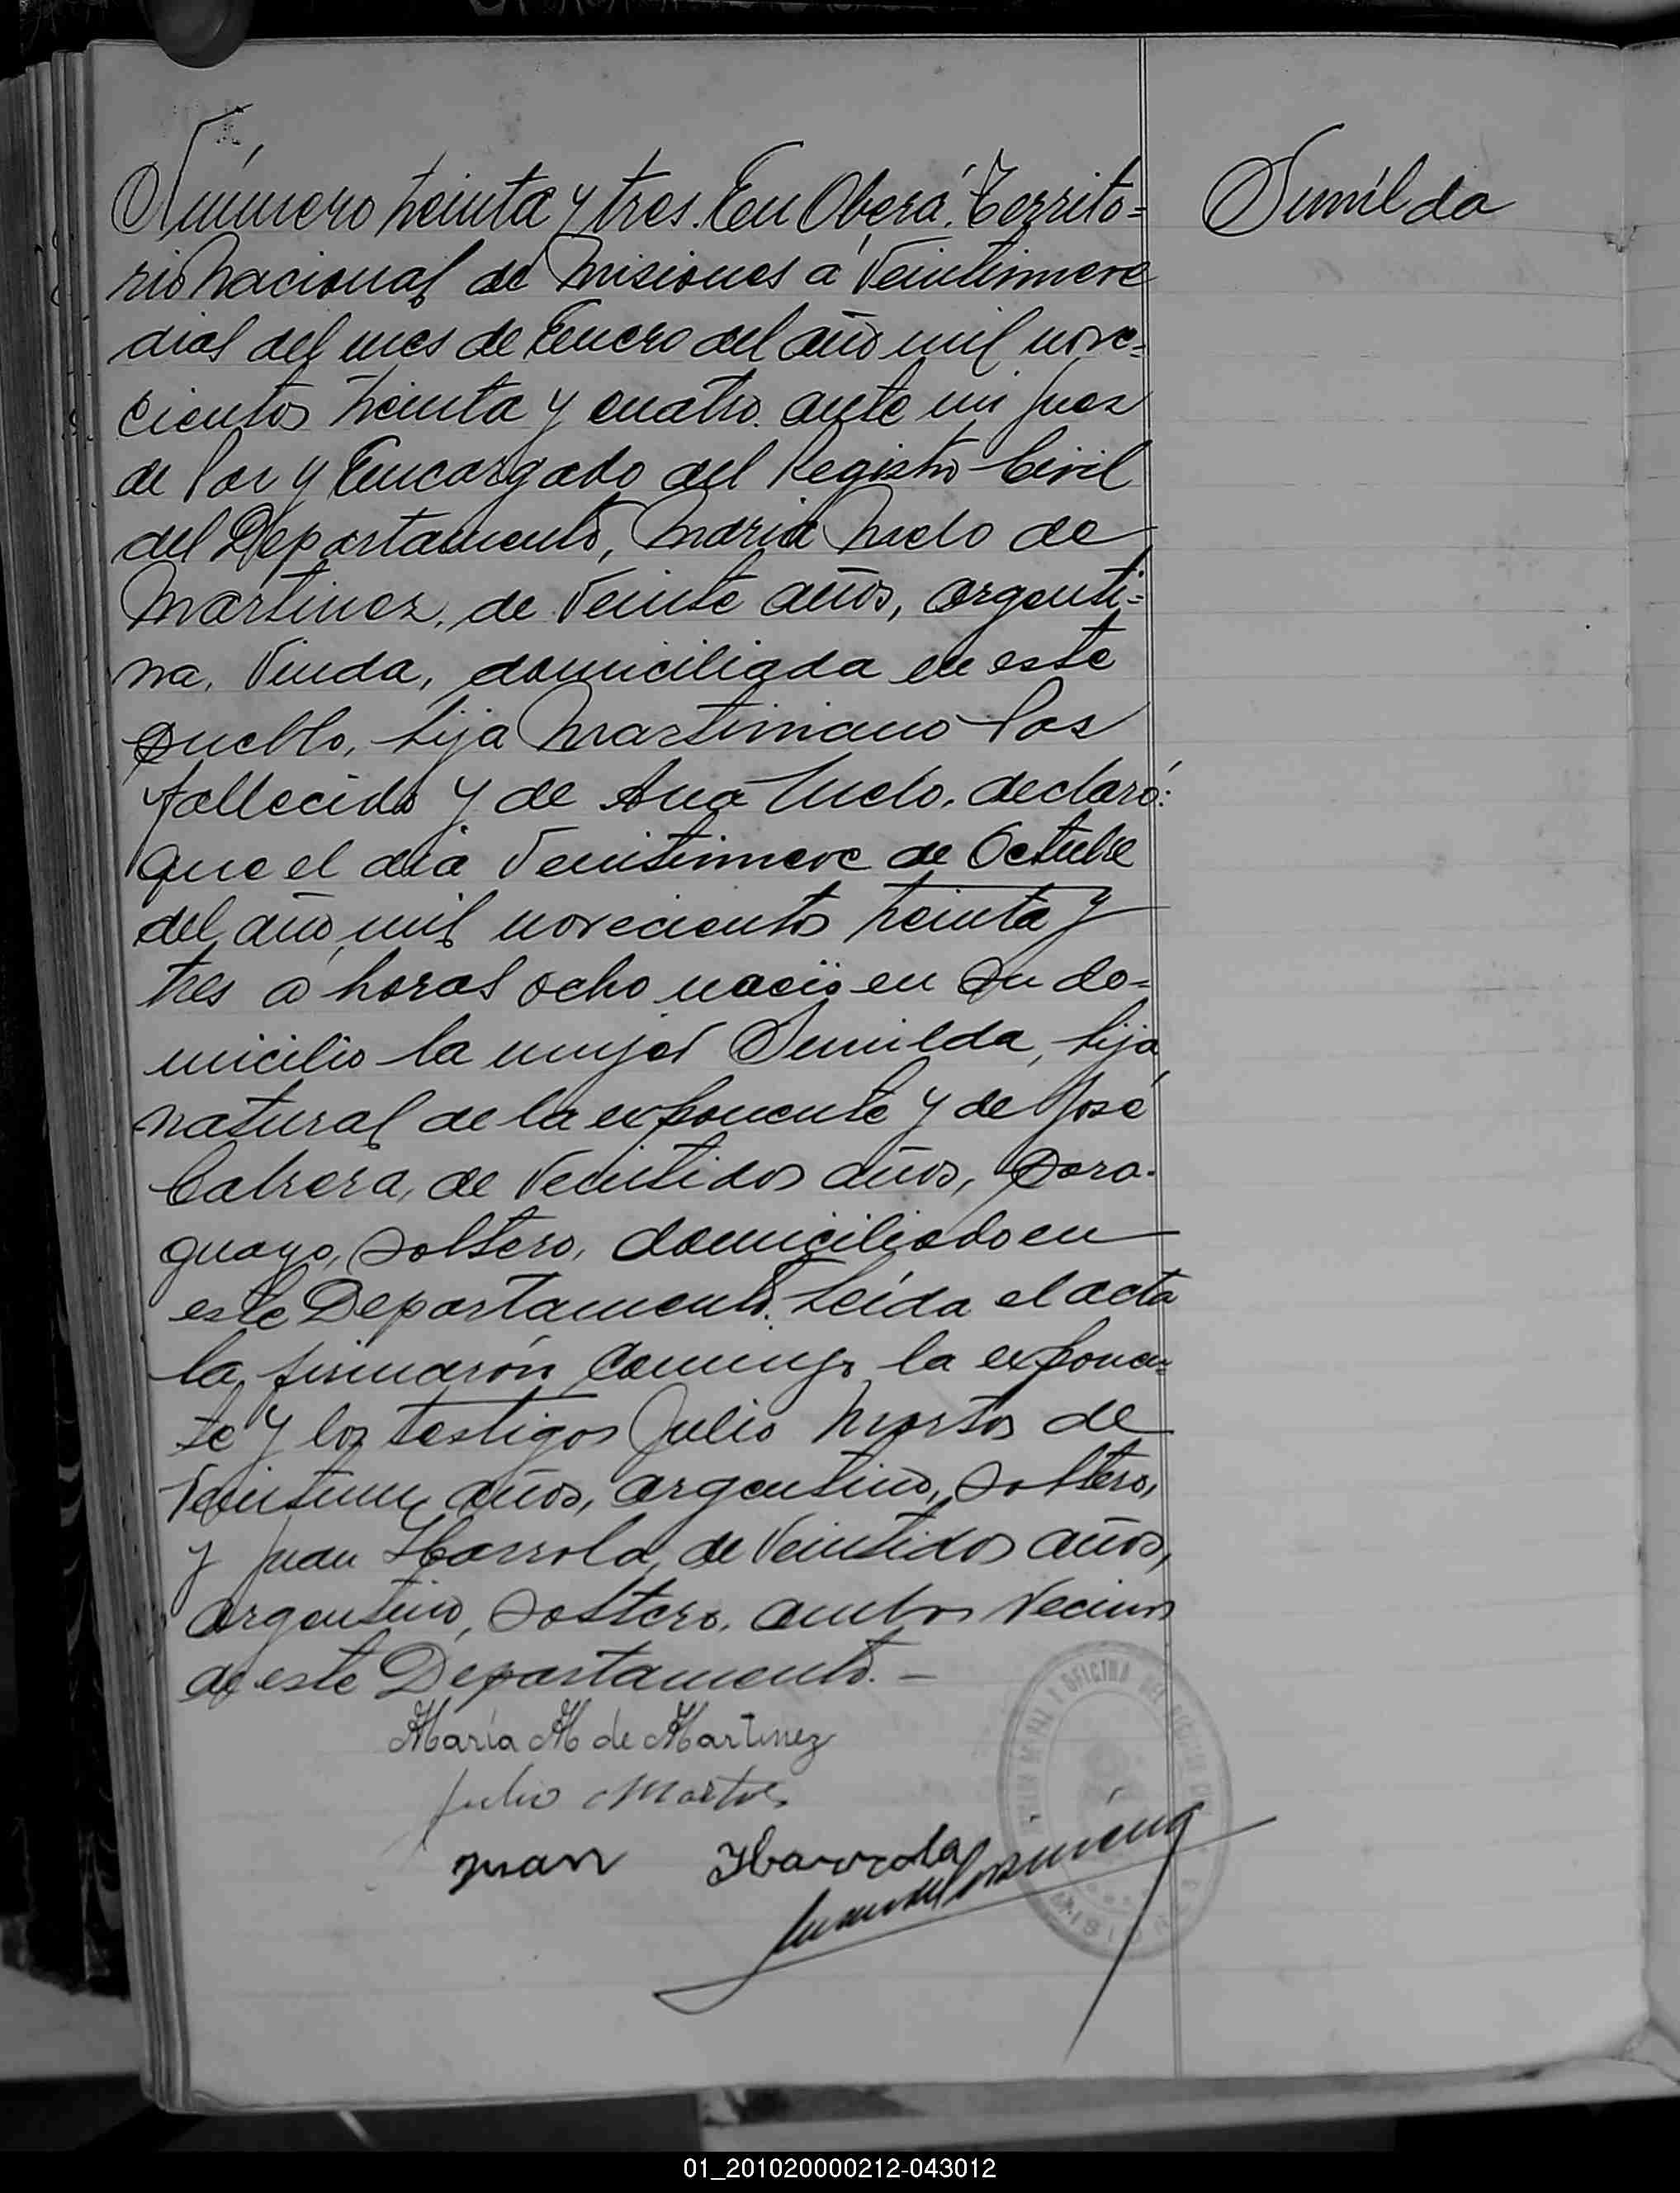 Número treinta y tres. En Oberá, Territo=
Sunilda
rio Nacional de Misiones a veintinueve
dias del mes de Enero del año mil nove=
cientos treinta y cuatro. ante mi Juez
de Paz y Encargado del Registro Civil
del Departamento, Maria Melo de
Martinez, de veinte años, argenti=
na, viuda, domiciliada en este
pueblo, hija Martiniano Pas
fallecido y de Ana Melo, declaró:
que el dia veintinueve de Octubre
del año mil novecientos treinta y
tres a horas ocho nació en su do=
micilio la mujer Sunilda, hija
natural de la exponente y de José
Cabrera, de veintidos años, para-
guayo, soltero, domiciliado en
este Departamento. Leída el acta
la firmarón conmigo la exponen=
te y los testigos Julio Martos de
veintiun años, argentino, soltero,
y Juan Ibarrola, de veintidos años,
argentino, soltero, ambos vecinos
de este Departamento. —
María M de Martinez
Julio Martos
Juan Ibarrola
OFICINA DEL
01_201020000212-043012